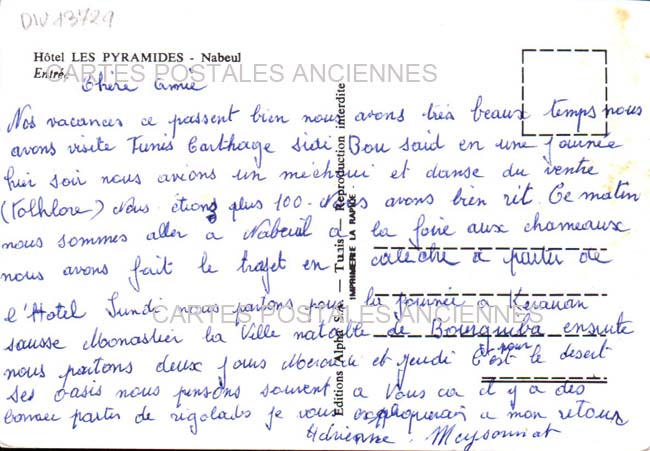 DIV13729
Hôtel LES PYRAMIDES - Nabeul
Entrée
CARTES POSTALES ANCIENNES
Chère Amie
Nos vacances ce passent bien nous avons très beaux temps nous
avons visite Tunis Carthage sidi Bou said en une journée
hier soir nous avions un méchoui et danse du ventre
(Folhlore) Nous étions plus 100 - Nous avons bien rit. Ce matin
nous sommes aller à Nabeuil a la foire aux chameaux
nous avons fait le trajet en calèche a partir de
l'Hotel Lundi nous partons pour la journée a Kerouan
CARTES POSTALES ANCIENNES
sausse Monastier la Ville natalle de Bourguiba ensuite
nous partons deux jours Mercredi et jeudi c'est le desert
et pour
Ses oasis nous pensons souvent a Vous car il y a des
bonnes parties de rigolads je vous expliquerais a mon retour
Adrienne. Meysonnat
Editions Alpha S.A. — Tunis — Reproduction interdite
IMPRIMERIE LA RAPIDE